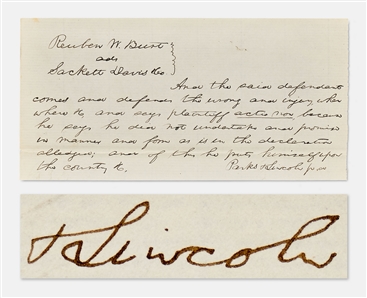 Reuben W. Burt
ads
Sackett Davis &c
And the said defendant
comes and defends the wrong and injury, when
where &c and says plaintiff actio non because
he says he did not undertake and promise
in manner and form as is in the declaration
alleged; and of this he puts himself upon
the country &c.
Parks & Lincoln p.d.
& Lincoln